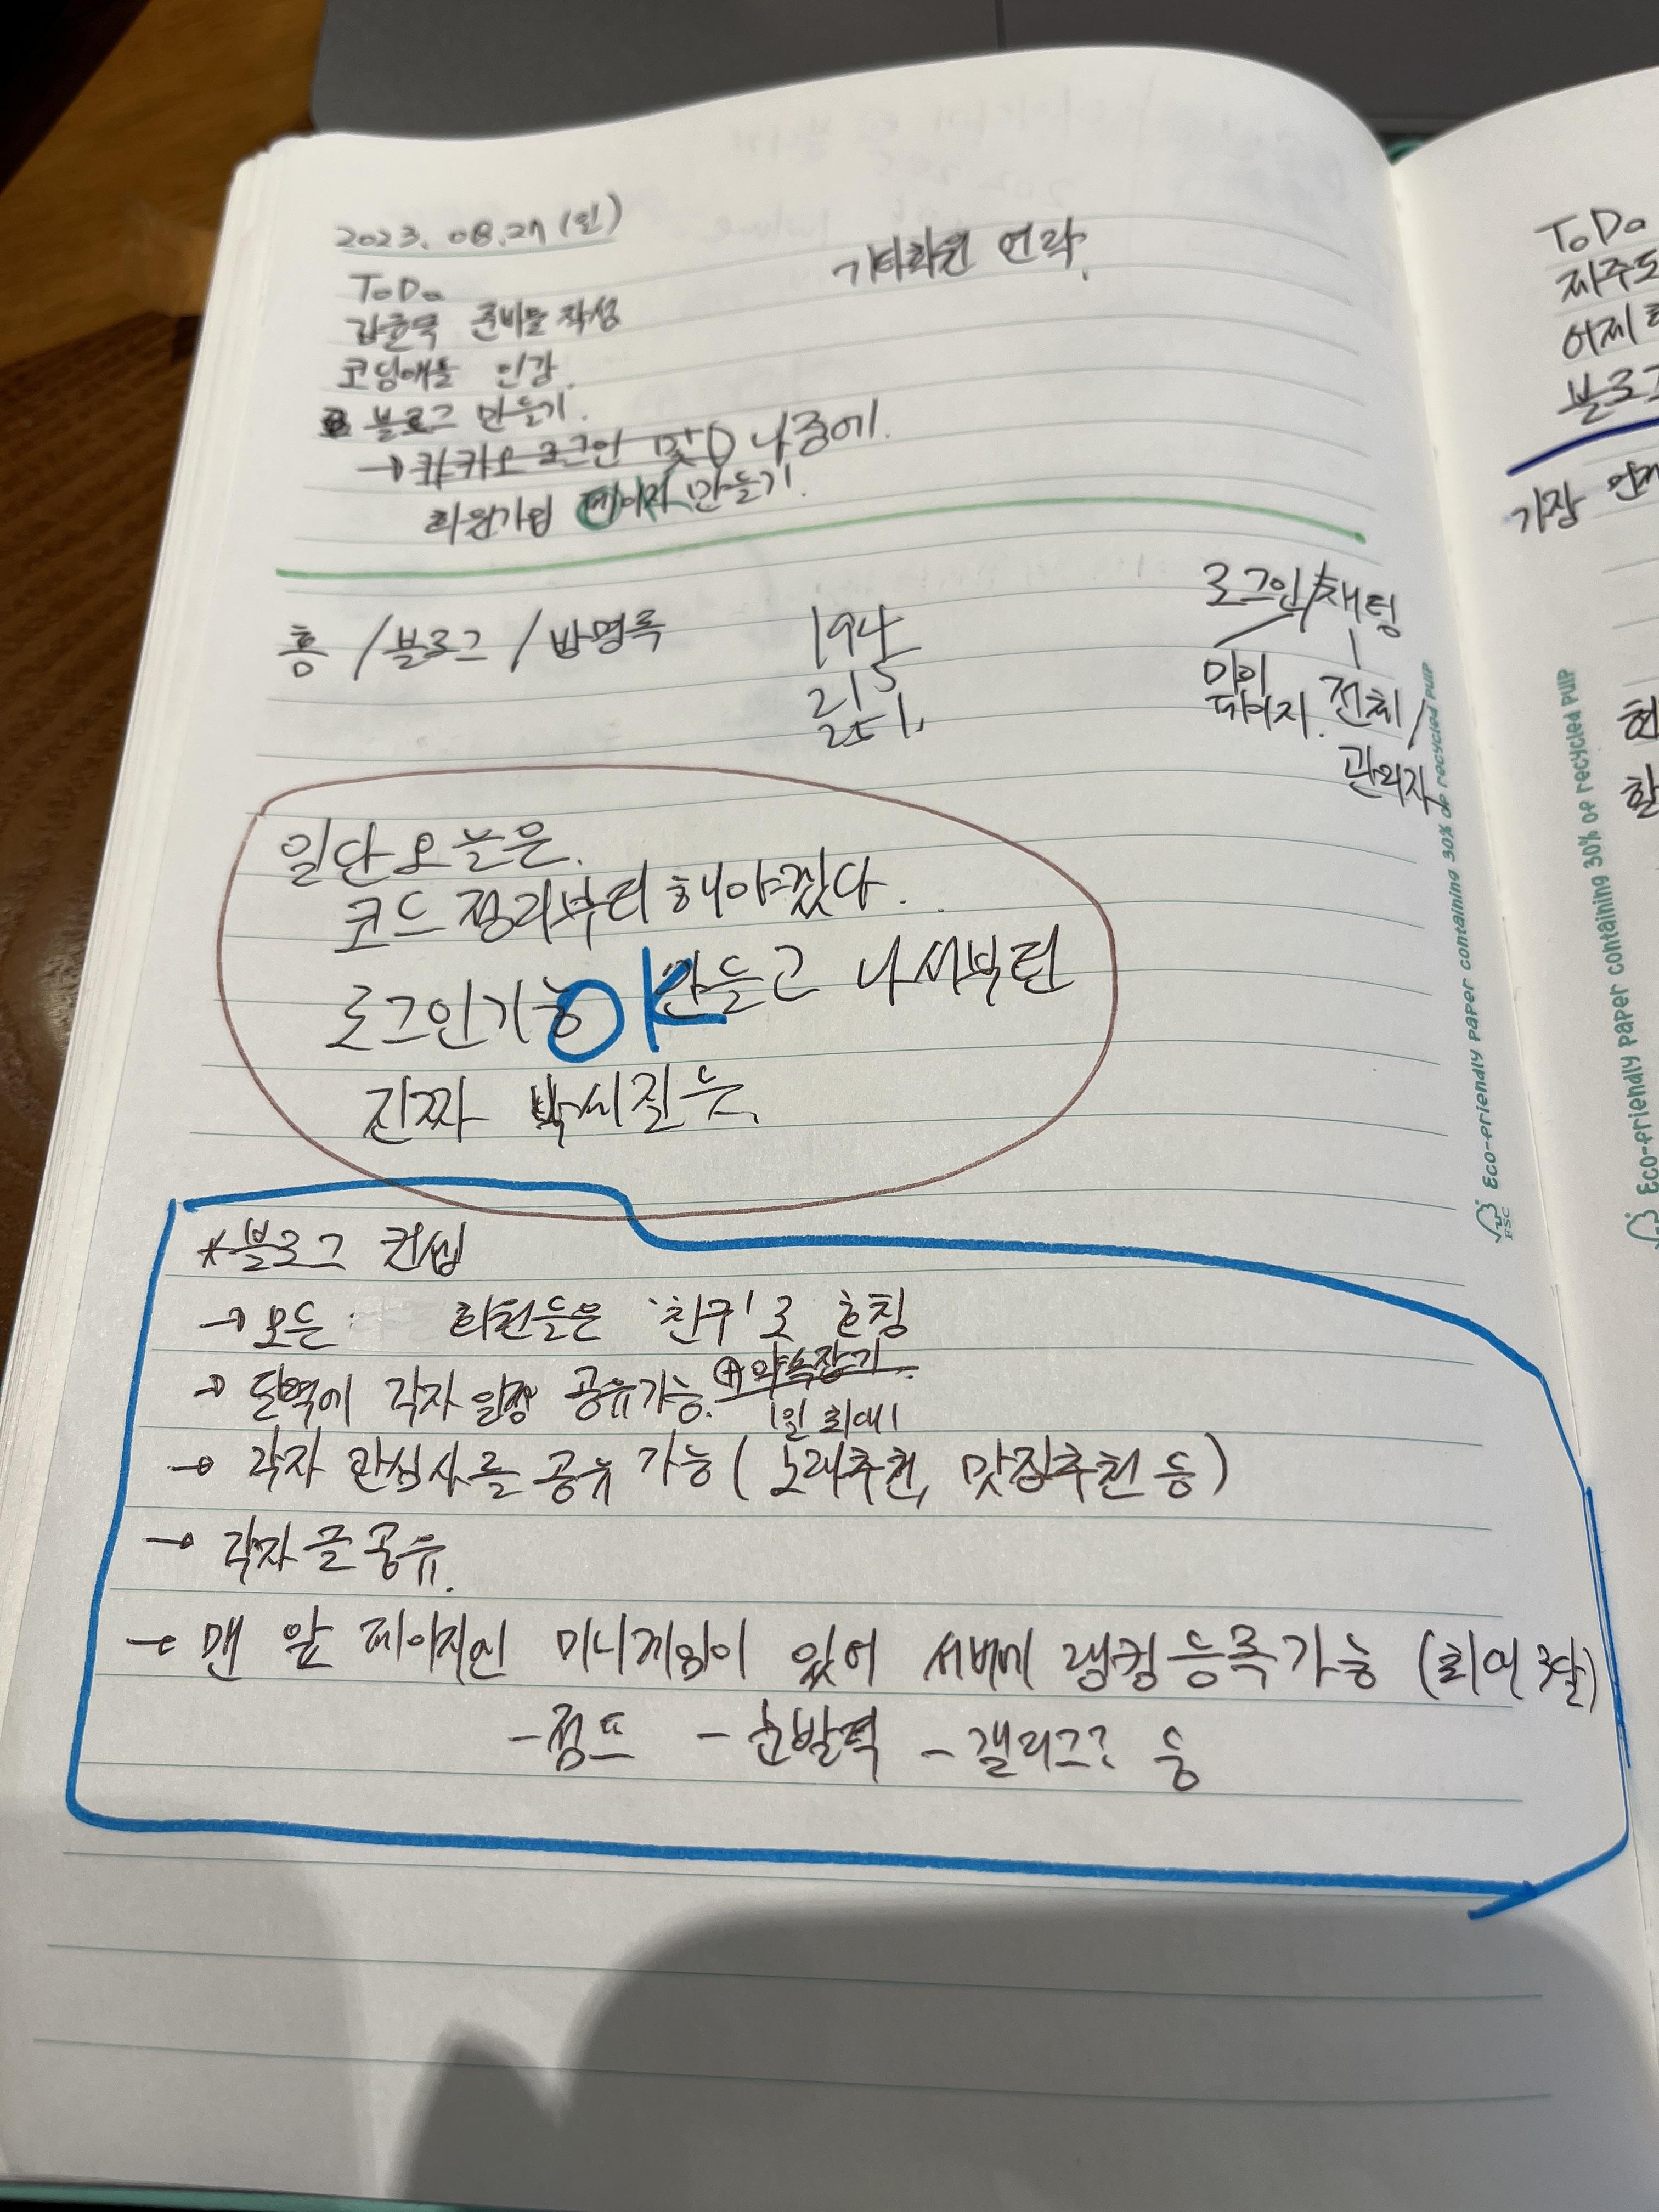 2023. 08.27 (일)
기타학원 연락.
ToDo
준비물 작성
코딩애플 인강.
블로그 만들기.
→ 카카오 로그인 및 나중에.
회원가입 페이지 만들기.
OK
홈 / 블로그 / 방명록
194
215
251.
로그인/채팅
마이
페이지. 전체 /
관리자
일단 오늘은.
코드 정리부터 해야겠다.
로그인기능 만들고 나서부턴
OK
진짜 빡세질듯.
*블로그 컨셉
→ 모든 회원들은 '친구'로 호칭
→ 달력에 각자 일정 공유가능. ⊕약속잡기.
1일 최대1
→ 각자 관심사를 공유 가능 (노래추천, 맛집추천 등)
→ 각자 글 공유.
→ 맨 앞 페이지엔 미니게임이 있어 서버에 랭킹 등록가능 (최여 3달)
-점프 -순발력 -갤러그? 등
Eco-friendly paper containing 30% of recycled pulp
FSC
ToDo
제주도
어제
블로그
가장
Eco-friendly paper containing 30% of recycled pulp